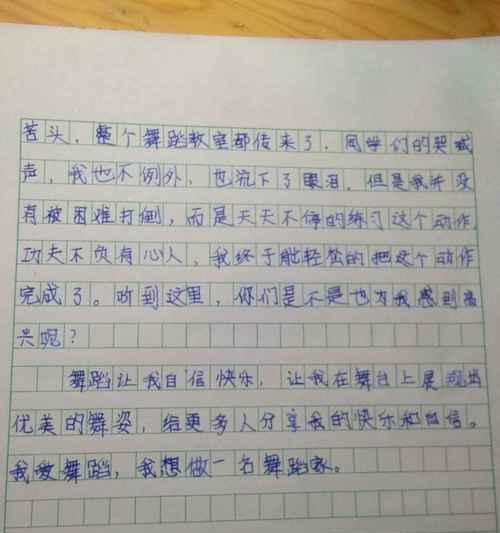 苦头，整个舞蹈教室都传来了，同学们的哭喊
声，我也不例外，也流下了眼泪，但是我并没
有被困难打倒，而是天天不停的练习这个动作，
功夫不负有心人，我终于能轻松的把这个动作
完成了。听到这里，你们是不是也为我感到高
兴呢？
舞蹈让我自信快乐，让我在舞台上展现出
优美的舞姿，给更多人分享我的快乐和自信。
我爱舞蹈，我想做一名舞蹈家。